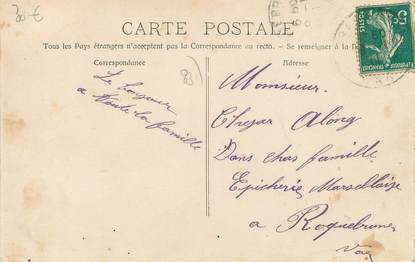 30 €
CARTE POSTALE
Tous les Pays étrangers n'acceptent pas la Correspondance au recto. - Se renseigner à la
Correspondance
Adresse
83
Le bonjour
a toute la famille
Monsieur
Along
Dans chas famille
Epicherie Marsellaise
a Roquebrune
Var
5
POSTES